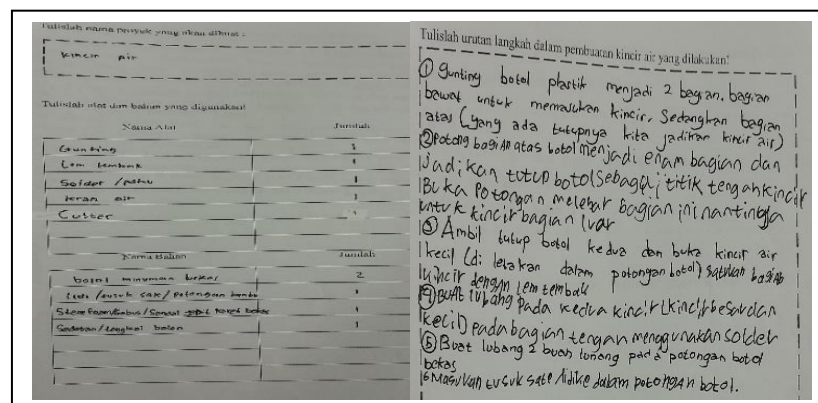 Tulislah nama proyek yang akan dibuat :
kincir air
Tulislah alat dan bahan yang digunakan!
Nama Alat Jumlah
Gunting 1
Lem tembak 1
Solder / paku 1
keran air 1
Cutter 1
Nama Bahan Jumlah
botol minuman bekas 2
lidi /tusuk sate / potongan bambu 1
Steorofoam/Gabus / Sandal bekas 1
Sedotan / tangkai balon 1
Tulislah urutan langkah dalam pembuatan kincir air yang dilakukan!
① gunting botol plastik menjadi 2 bagian. bagian
bawah untuk memasukan kincir. Sedangkan bagian
atas (yang ada tutupnya kita jadikan kincir air)
② Potong bagian atas botol menjadi enam bagian dan
jadikan tutup botol sebagai titik tengah kincir
Buka Potongan melebar bagian ini nantingja
untuk kincir bagian luar
③ Ambil tutup botol kedua dan buka kincir air
kecil (di letakan dalam potongan botol) satukan bagian
kincir dengan lem tembak
④ Buat lubang pada kedua kincir (kincir besar dan
kecil) pada bagian tengan menggunakan solder
⑤ Buat lubang 2 buah lubang pada potongan botol
bekas
6 Masukan tusuk sate /lidi ke dalam potongan botol.